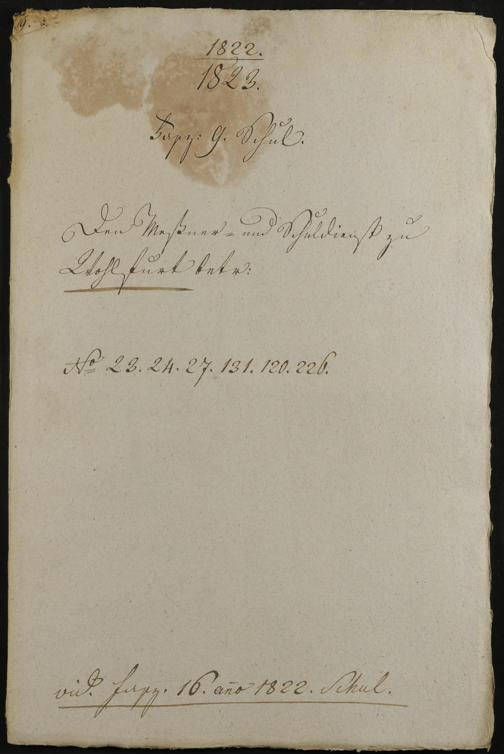 1822.
1823.
Fasz: 9. Schul.
Den Meßner- und Schuldienst zu
Wohlfurt betr:
No 23. 24. 27. 131. 120. 226.
vid. Fasz. 16. año 1822. Schul.